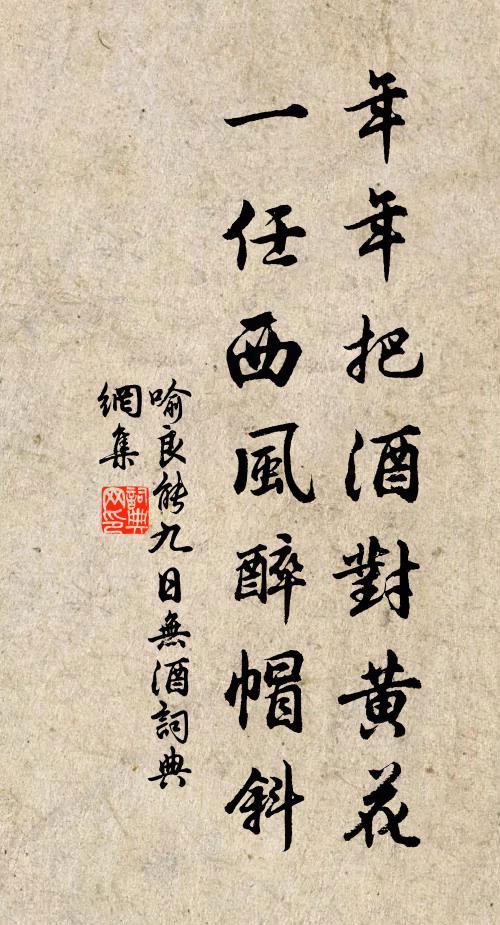 年年把酒對黄花
一任西風醉帽斜
喻良能九日無酒詞典
網集
詞典网印